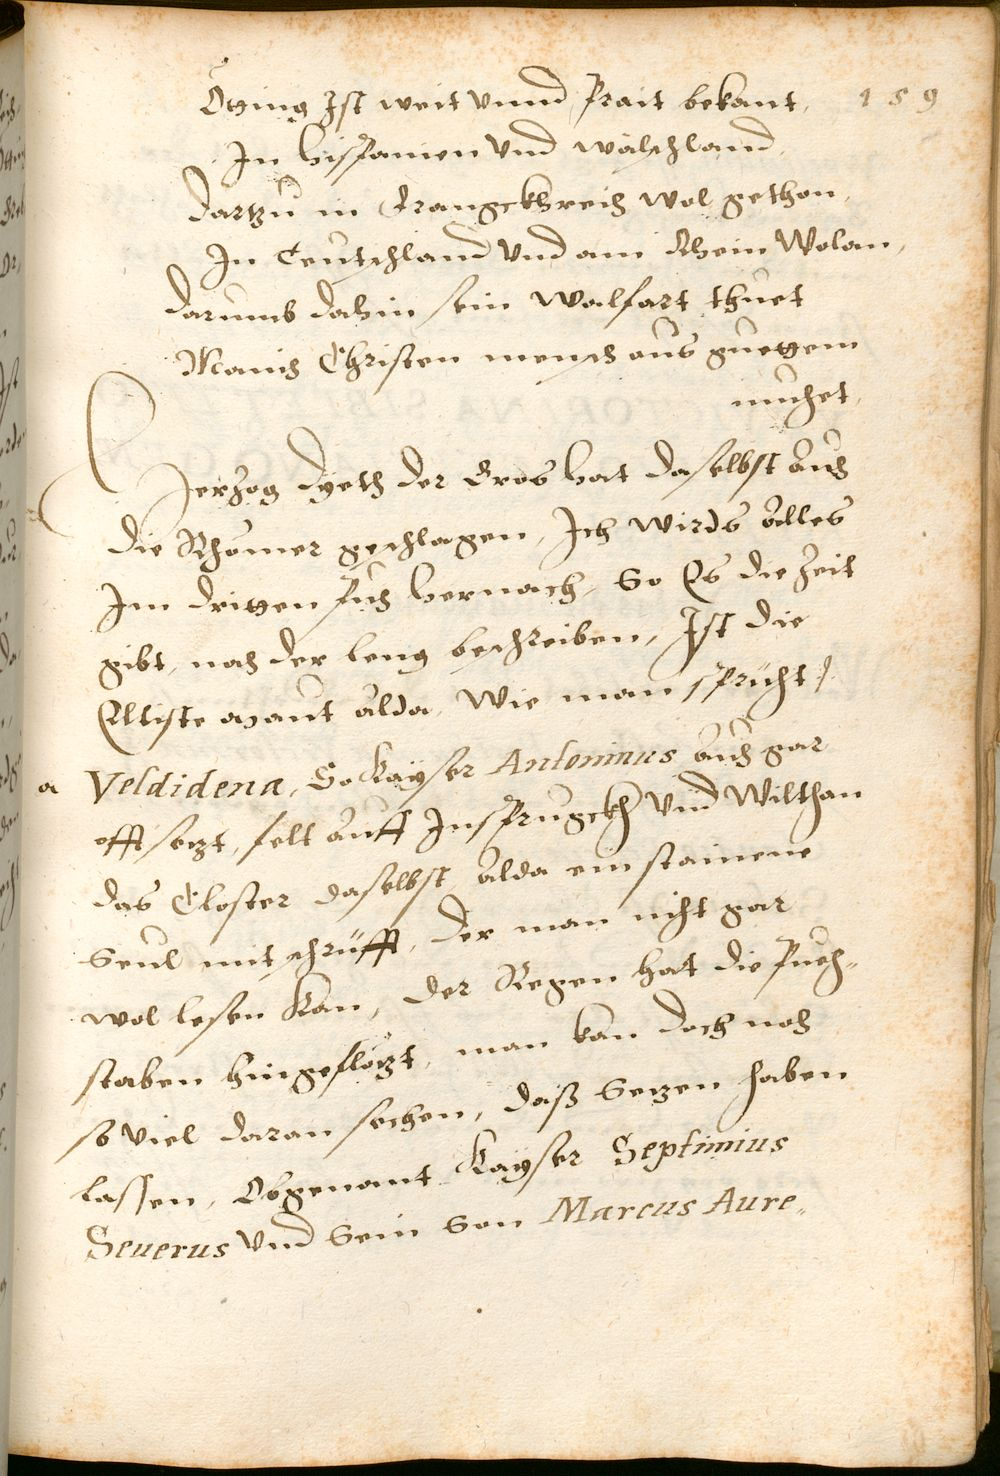 Otting Ist weit Vnnd Prait bekant, 159
In hispanien Vnd wälschland,
dartzu in Franngckhreich wol gethon,
In Teutschland Vnd am Rhein Wolan,
darumb dahin sein Walfart thuet
Manich Christen mensch aus guettem
muehet,
Herzog dieth der Gros hat daselbst auch
die Rhömer geschlagen, Ich wirds alles
Im dritten Puch hernach, So Es die Zeit
gibt, nach der leng beschreiben, Ist die
Eltiste maut alda, Wie man spricht,
a Veldidena, So Kayser Antoninus auch gar
offt sezt, felt auff Insprugckh Vnd Wilthan
das Closter daselbst, alda ein stainene
Seul mit schrüfft, der man nicht gar
wol lesen Kan, der Regen hat die Puch-
staben hingeflözt, man kan doch noch
so viel daran sechen, daß Setzen haben
lassen, Obgenant Kayser Septimius
Seuerus Vnd Sein Son Marcus Aure-